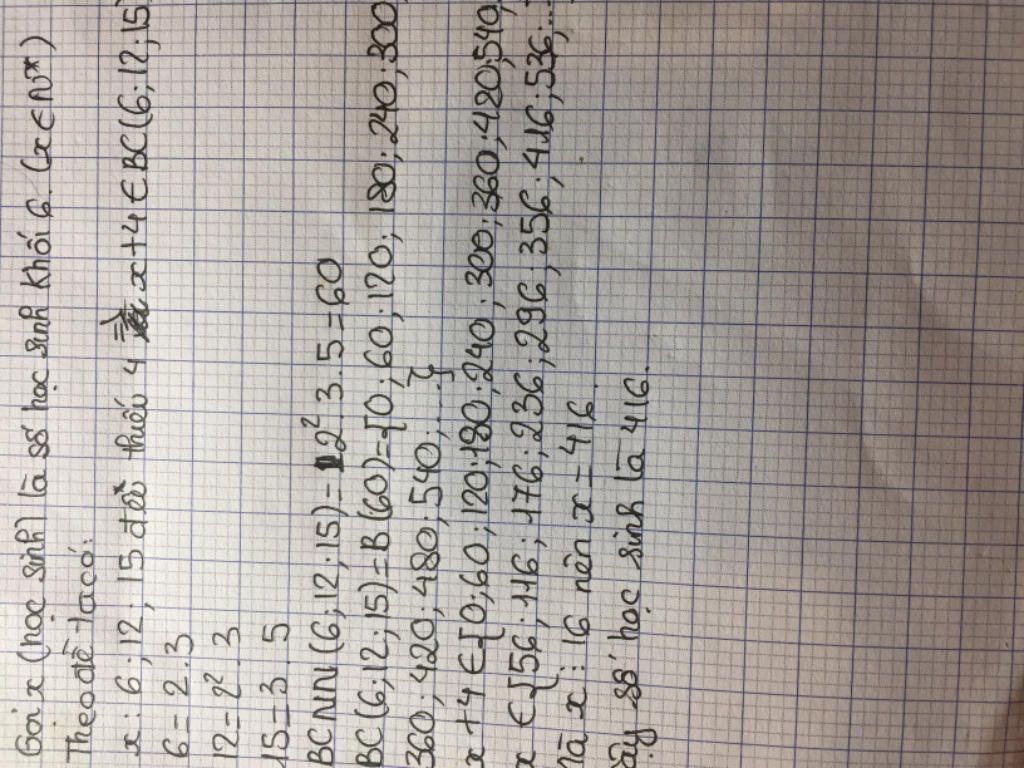 Gọi x (học sinh) là số học sinh khối 6. (x ∈ N*)
Theo đề ta có:
x : 6 ; 12 ; 15 đều thiếu 4 ⇒ x + 4 ∈ BC (6 ; 12 ; 15)
6 = 2 . 3
12 = 2² . 3
15 = 3 . 5
BCNN (6 ; 12 ; 15) = 2² . 3 . 5 = 60
BC (6 ; 12 ; 15) = B (60) = {0 ; 60 ; 120 ; 180 ; 240 ; 300
360 ; 420 ; 480 ; 540 ; ...}
x + 4 ∈ {0 ; 60 ; 120 ; 180 ; 240 ; 300 ; 360 ; 420 ; 540
x ∈ {56 ; 116 ; 176 ; 236 ; 296 ; 356 ; 416 ; 536 ; ...
Mà x ⋮ 16 nên x = 416
Vậy số học sinh là 416.